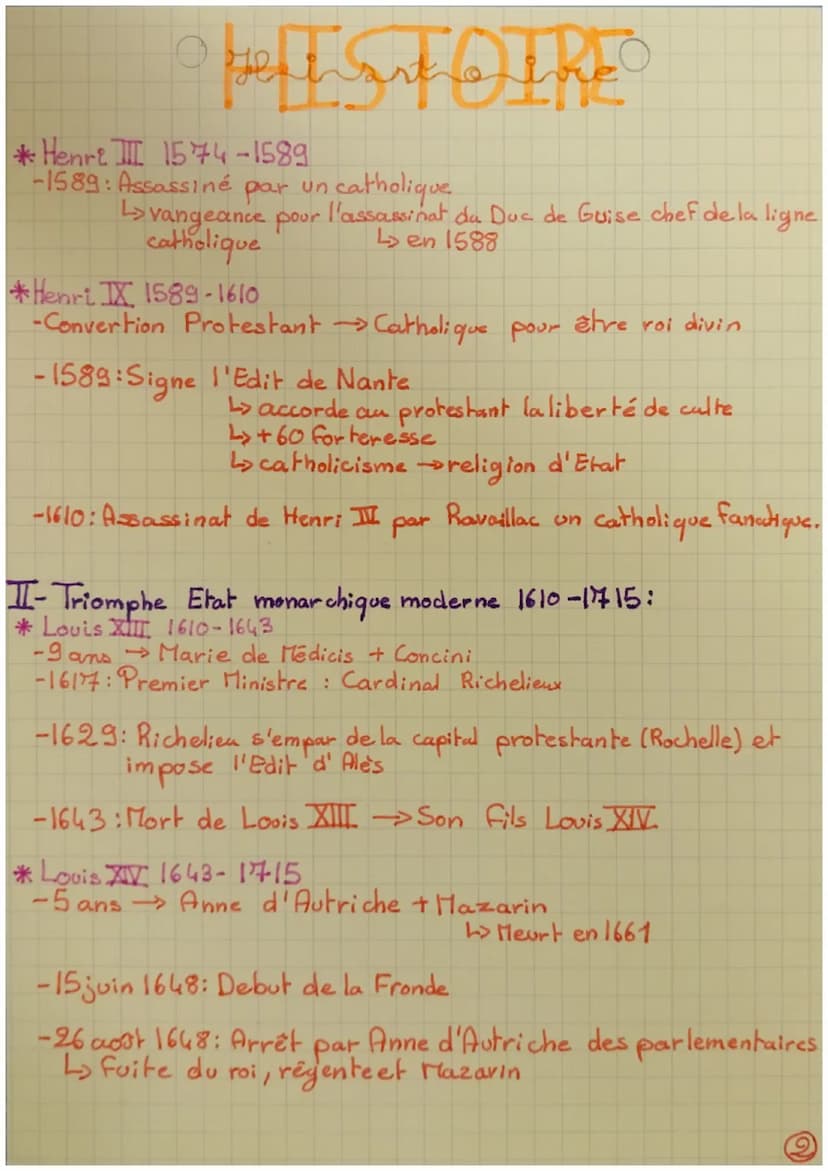 HISTOIRE
Histoire
* Henri III 1574-1589
-1589: Assassiné par un catholique
↳ vangeance pour l'assassinat du Duc de Guise chef de la ligne
catholique ↳ en 1588
* Henri IX 1589-1610
-Convertion Protestant → Catholique pour être roi divin
-1589: Signe l'Edit de Nante
↳ accorde au protestant la liberté de culte
↳ +60 forteresse
↳ catholicisme → religion d'Etat
-1610: Assassinat de Henri IV par Ravaillac un catholique fanatique.
II- Triomphe Etat monarchique moderne 1610-1715:
* Louis XIII 1610-1643
-9 ans → Marie de Médicis + Concini
-1617: Premier Ministre : Cardinal Richelieux
-1629: Richelieu s'empar de la capital protestante (Rochelle) et
impose l'Edit d'Alès
-1643: Mort de Louis XIII → Son fils Louis XIV
* Louis XIV 1643-1715
-5 ans → Anne d'Autriche + Mazarin
↳ Meurt en 1661
-15 juin 1648: Debut de la Fronde
-26 août 1648: Arrêt par Anne d'Autriche des parlementaires
↳ fuite du roi, régente et Mazarin
2